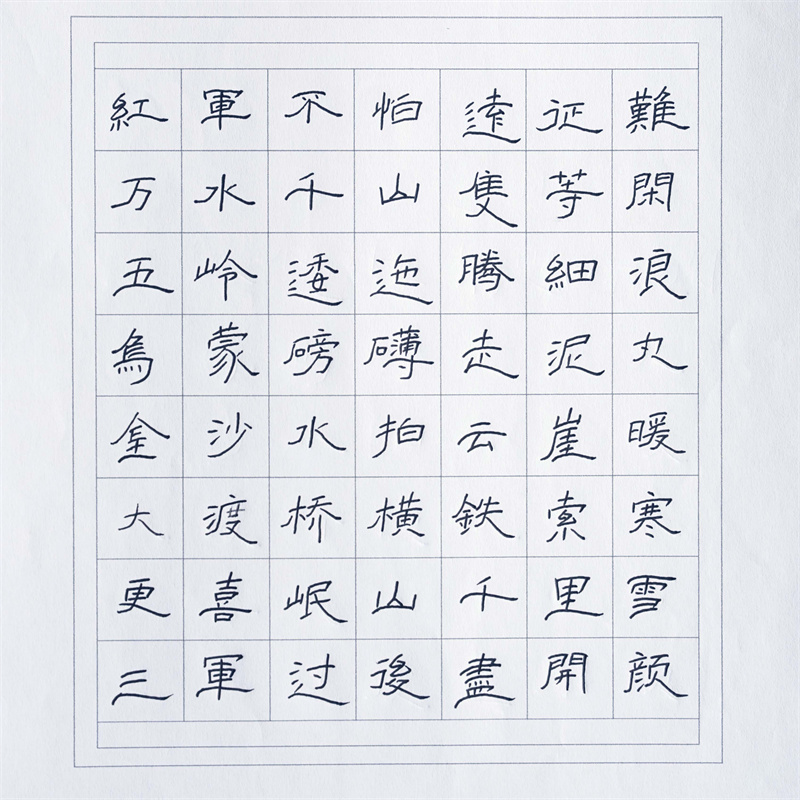 紅軍不怕遠征難
万水千山隻等閑
五岭逶迤腾細浪
烏蒙磅礴走泥丸
金沙水拍云崖暖
大渡桥横鉄索寒
更喜岷山千里雪
三軍过後盡開颜